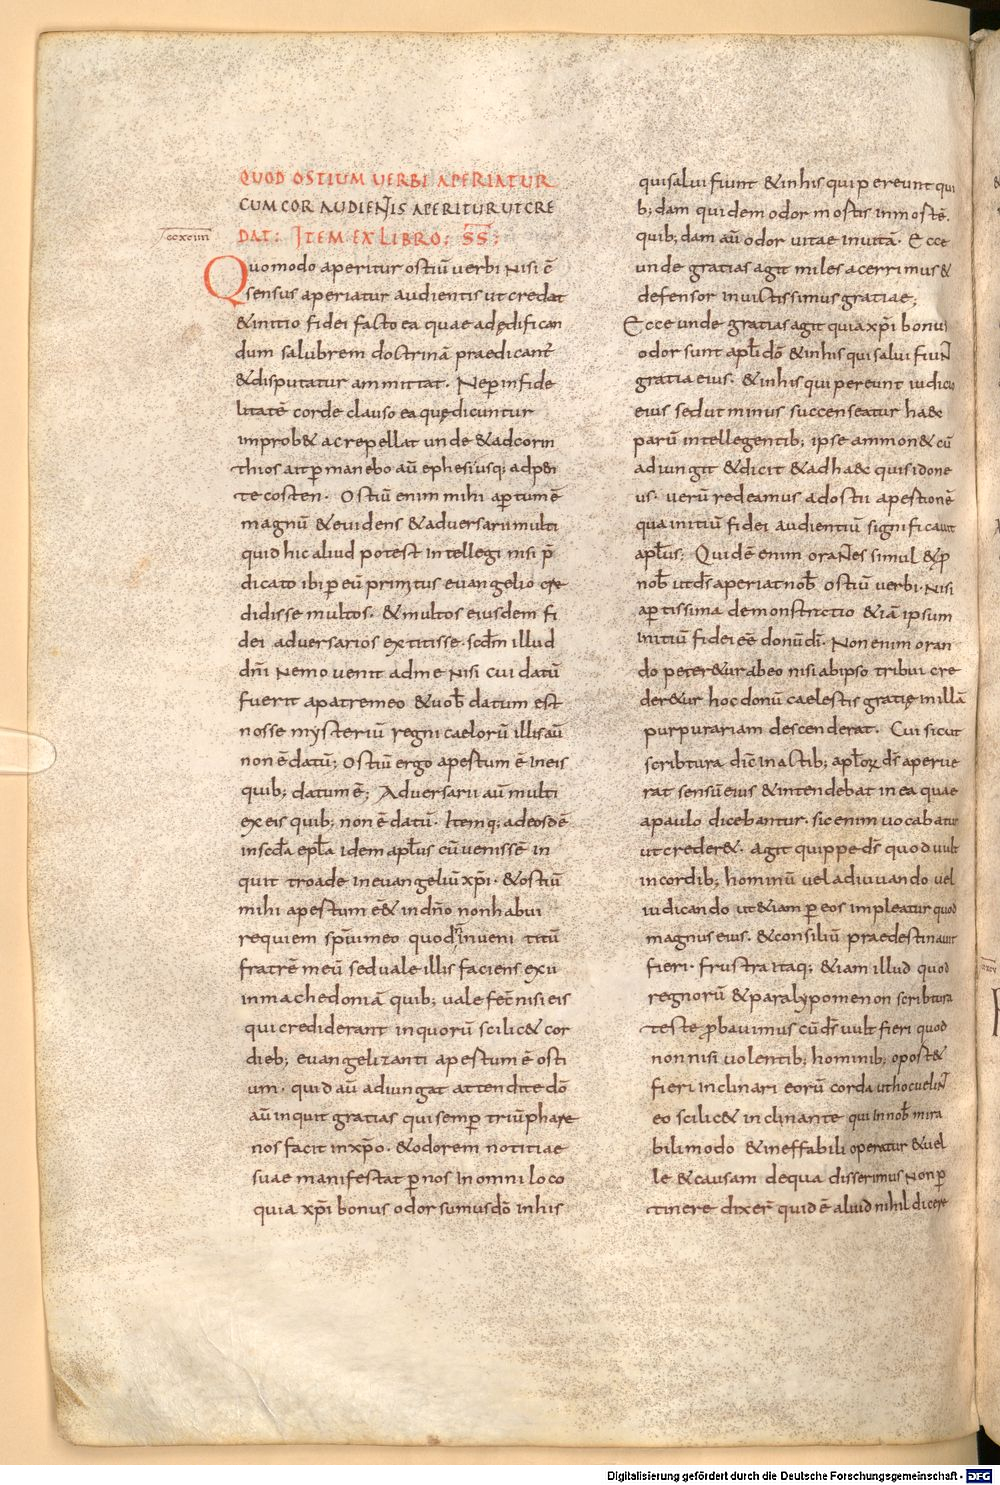 QUOD OSTIUM UERBI APERIATUR
CUM COR AUDIENTIS APERITUR UT CRE
DAT: ITEM EX LIBRO: S̅S̅:
ccxciiii
Quomodo aperitur ostiū uerbi nisi c̄
sensus aperiatur audientis ut credat
& initio fidei facto ea quae adędifican
dum salubrem doctrinā praedicant̄
& disputatur ammittat. Ne ꝑ infide
litatē corde clauso ea quędicuntur
improb& ac repellat unde & ad corin
thios ait ꝑmanebo aū ephesi usq; ad pen
tecosten. Ostiū enim mihi aꝑtum ē
magnū & euidens & aduersarii multi
quid hic aliud potest intellegi nisi p̄
dicato ibi ꝑ eū primitus euangelio cre
didisse multos. & multos eiusdem fi
dei aduersarios extitisse. scd̄m illud
dn̄i Nemo uenit ad me nisi cui datū
fuerit a patre meo & uob̄ datum est
nosse mysteriū regni caelorū illis aū
non ē datū; Ostiū ergo apestum ē in eis
quib; datum ē; Aduersarii aū multi
ex eis quib; non ē datū. Itemq; ad eosdē
in sc̄da epl̄a idem apl̄us cū uenissē in
quit troade in euangeliū xp̄i. & ostiū
mihi apestum ē& in dn̄o non habui
requiem sp̄ui meo quod n̄ inueni titū
fratrē meū sed uale illis faciens exii
in machedoniā quib; uale fec̄ nisi eis
qui crediderant in quorū scilic& cor
dieb; euangelizanti apestum ē osti
um. quid aū adiungat attendite dō
aū inquit gratias qui semꝑ triūphare
nos facit in xp̄o. & odorem notitiae
suae manifestat ꝑ nos in omni loco
quia xp̄i bonus odor sumus dō in his
qui salui fiunt & in his qui pereunt qui
b; dam quidem odor mostis in mostē.
quib; dam aū odor uitae in uitā. Ecce
unde gratias agit miles acerrimus &
defensor inuictissimus gratiae;
Ecce unde gratias agit quia xp̄i bonus
odor sunt apl̄i dō & in his qui salui fiunt
gratia eius. & in his qui pereunt iudicio
eius sed ut minus succenseatur haec
parū intellegentib; ipse ammon& cū
adiungit & dicit & ad haec quis idone
us. uerū redeamus ad ostii apestionē
qua initiū fidei audientiū significauit
apl̄us; Quid ē enim orantes simul & ꝓ
nob̄ ut d̄s aperiat nob̄ ostiū uerbi. nisi
aꝑtissima demonstratio & iā ipsum
initiū fidei eē donū dī. Non enim oran
do peter&ur ab eo nisi ab ipso tribui cre
der&ur hoc donū caelestis gratię in illā
purpurariam descenderat. Cui sicut
scribtura dic̄ in actib; apl̄oꝝ d̄s aperue
rat sensū eius & intendebat in ea quae
a paulo dicebantur. sic enim uocabatur
ut creder&. agit quippe d̄s quod uult
in cordib; hominū uel adiuuando uel
iudicando ut &iam ꝑ eos impleatur quod
magnus eius. & consiliū praedestinauit
fieri. frustra itaq; &iam illud quod
regnorū & paralypomenon scribtura
teste ꝓbauimus cū d̄s uult fieri quod
non nisi uolentib; hominib; opost&
fieri inclinari eorū corda ut hoc uelint
eo scilic& inclinante qui in nob̄ mira
bili modo & ineffabili operatur & uel
le & causam de qua disserimus non ꝑ
tinere dixer̄ quid ē aliud nihil dicere
Digitalisierung gefördert durch die Deutsche Forschungsgemeinschaft - DFG